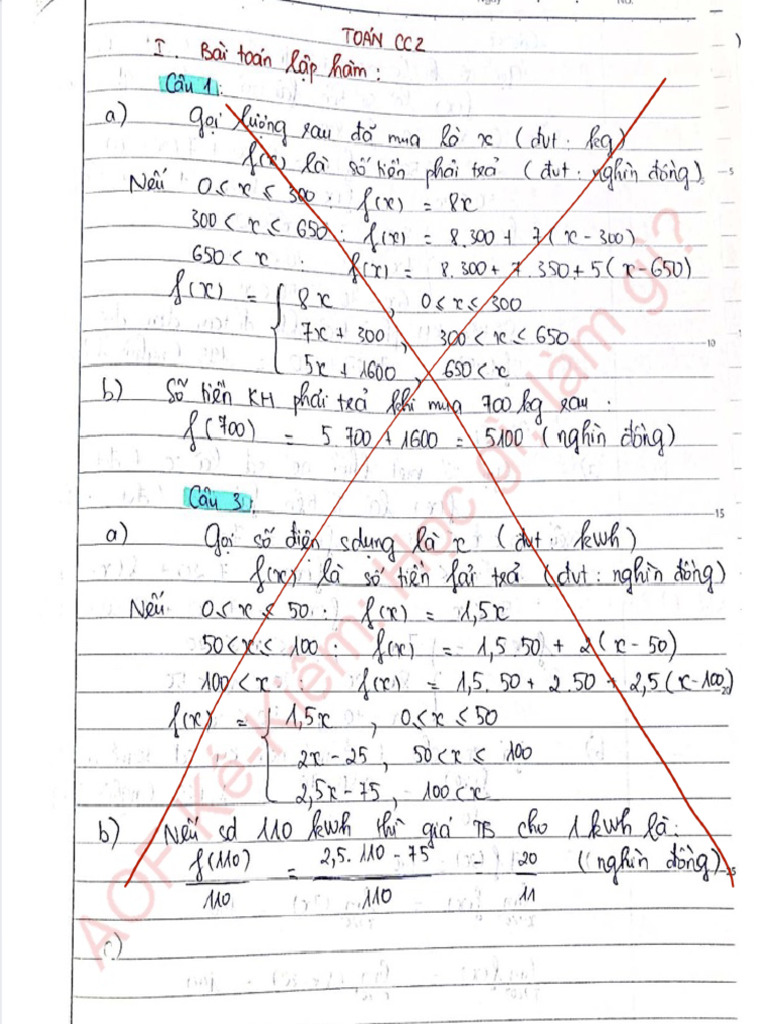 TOÁN CC2
I. Bài toán lập hàm:
Câu 1:
a) Gọi lượng rau đó mua là x (đvt: kg)
f(x) là số tiền phải trả (đvt: nghìn đồng)
Nếu 0 ≤ x ≤ 300: f(x) = 8x
300 < x ≤ 650: f(x) = 8.300 + 7(x - 300)
650 < x : f(x) = 8.300 + 7.350 + 5(x - 650)
f(x) = { 8x , 0 ≤ x ≤ 300
7x + 300 , 300 < x ≤ 650
5x + 1600 , 650 < x
b) Số tiền KH phải trả khi mua 700 kg rau:
f(700) = 5.700 + 1600 = 5100 (nghìn đồng)
Câu 3:
a) Gọi số điện sdụng là x (đvt: kwh)
f(x) là số tiền fải trả (đvt: nghìn đồng)
Nếu 0 ≤ x ≤ 50: f(x) = 1,5x
50 < x ≤ 100: f(x) = 1,5.50 + 2(x - 50)
100 < x : f(x) = 1,5.50 + 2.50 + 2,5(x-100)
f(x) = { 1,5x , 0 ≤ x ≤ 50
2x - 25 , 50 < x ≤ 100
2,5x - 75 , 100 < x
b) Nếu sd 110 kwh thì giá TB cho 1 kwh là:
f(110)/110 = 2,5.110 - 75/110 = 20/11 (nghìn đồng)
c)
5
10
15
20
25
AOF Kẻ-Kiểm: Học gì, làm gì?